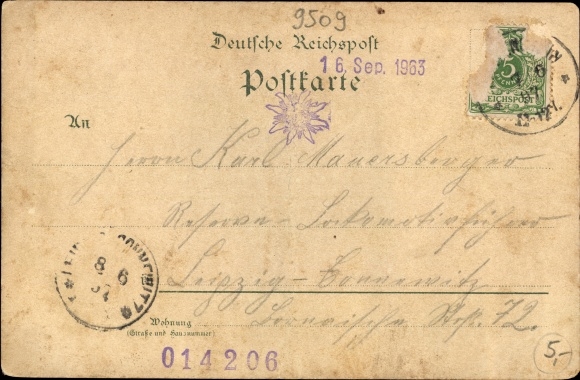 9509
Deutsche Reichspost
16. Sep. 1963
Postkarte
5
REICHSPOST
An
Herrn Karl Mauersberger
Reserve-Lokomotivführer
Leipzig-Connewitz
8 6
97
Wohnung
(Straße und Hausnummer)
Str. 72.
014206
5,-